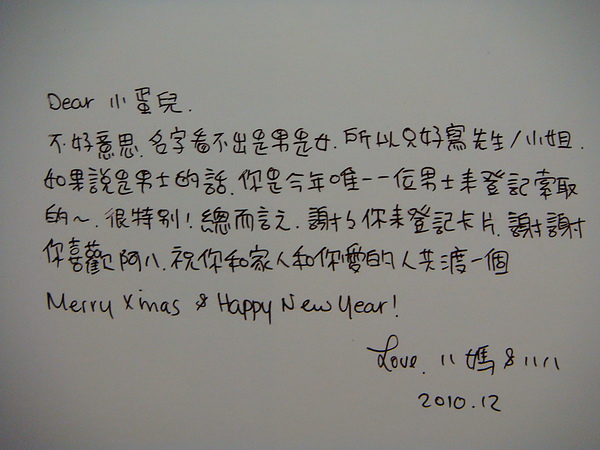 Dear 小蛋兒.
不好意思. 名字看不出是男是女. 所以只好寫先生/小姐.
如果說是男士的話. 你是今年唯一一位男士來登記索取
的～. 很特別! 總而言之. 謝ㄌ你來登記卡片. 謝謝
你喜歡阿八. 祝你和家人和你愛的人共渡一個
Merry Xmas & Happy New Year!
Love. 八媽 & 小八
2010.12